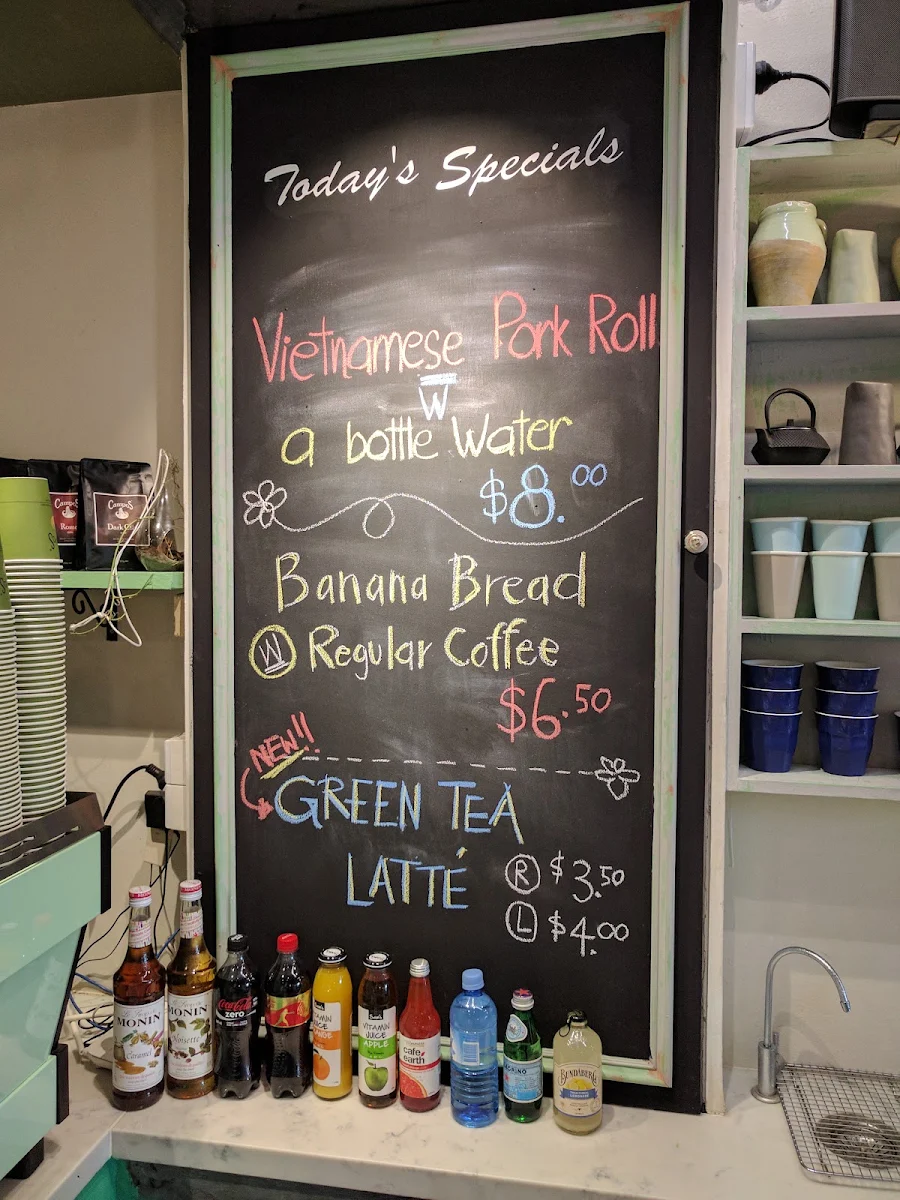 Today's Specials
Vietnamese Pork Roll
W
a bottle Water
$8.00
Banana Bread
W Regular Coffee
$6.50
NEW!!
GREEN TEA
LATTÉ
R $3.50
L $4.00
CampoS
Dark
MONIN
Caramel
MONIN
Noisette
Coca-Cola
zero
VITAMIN
JUICE
VITAMIN
JUICE
APPLE
cafe
earth
BUNDABERG